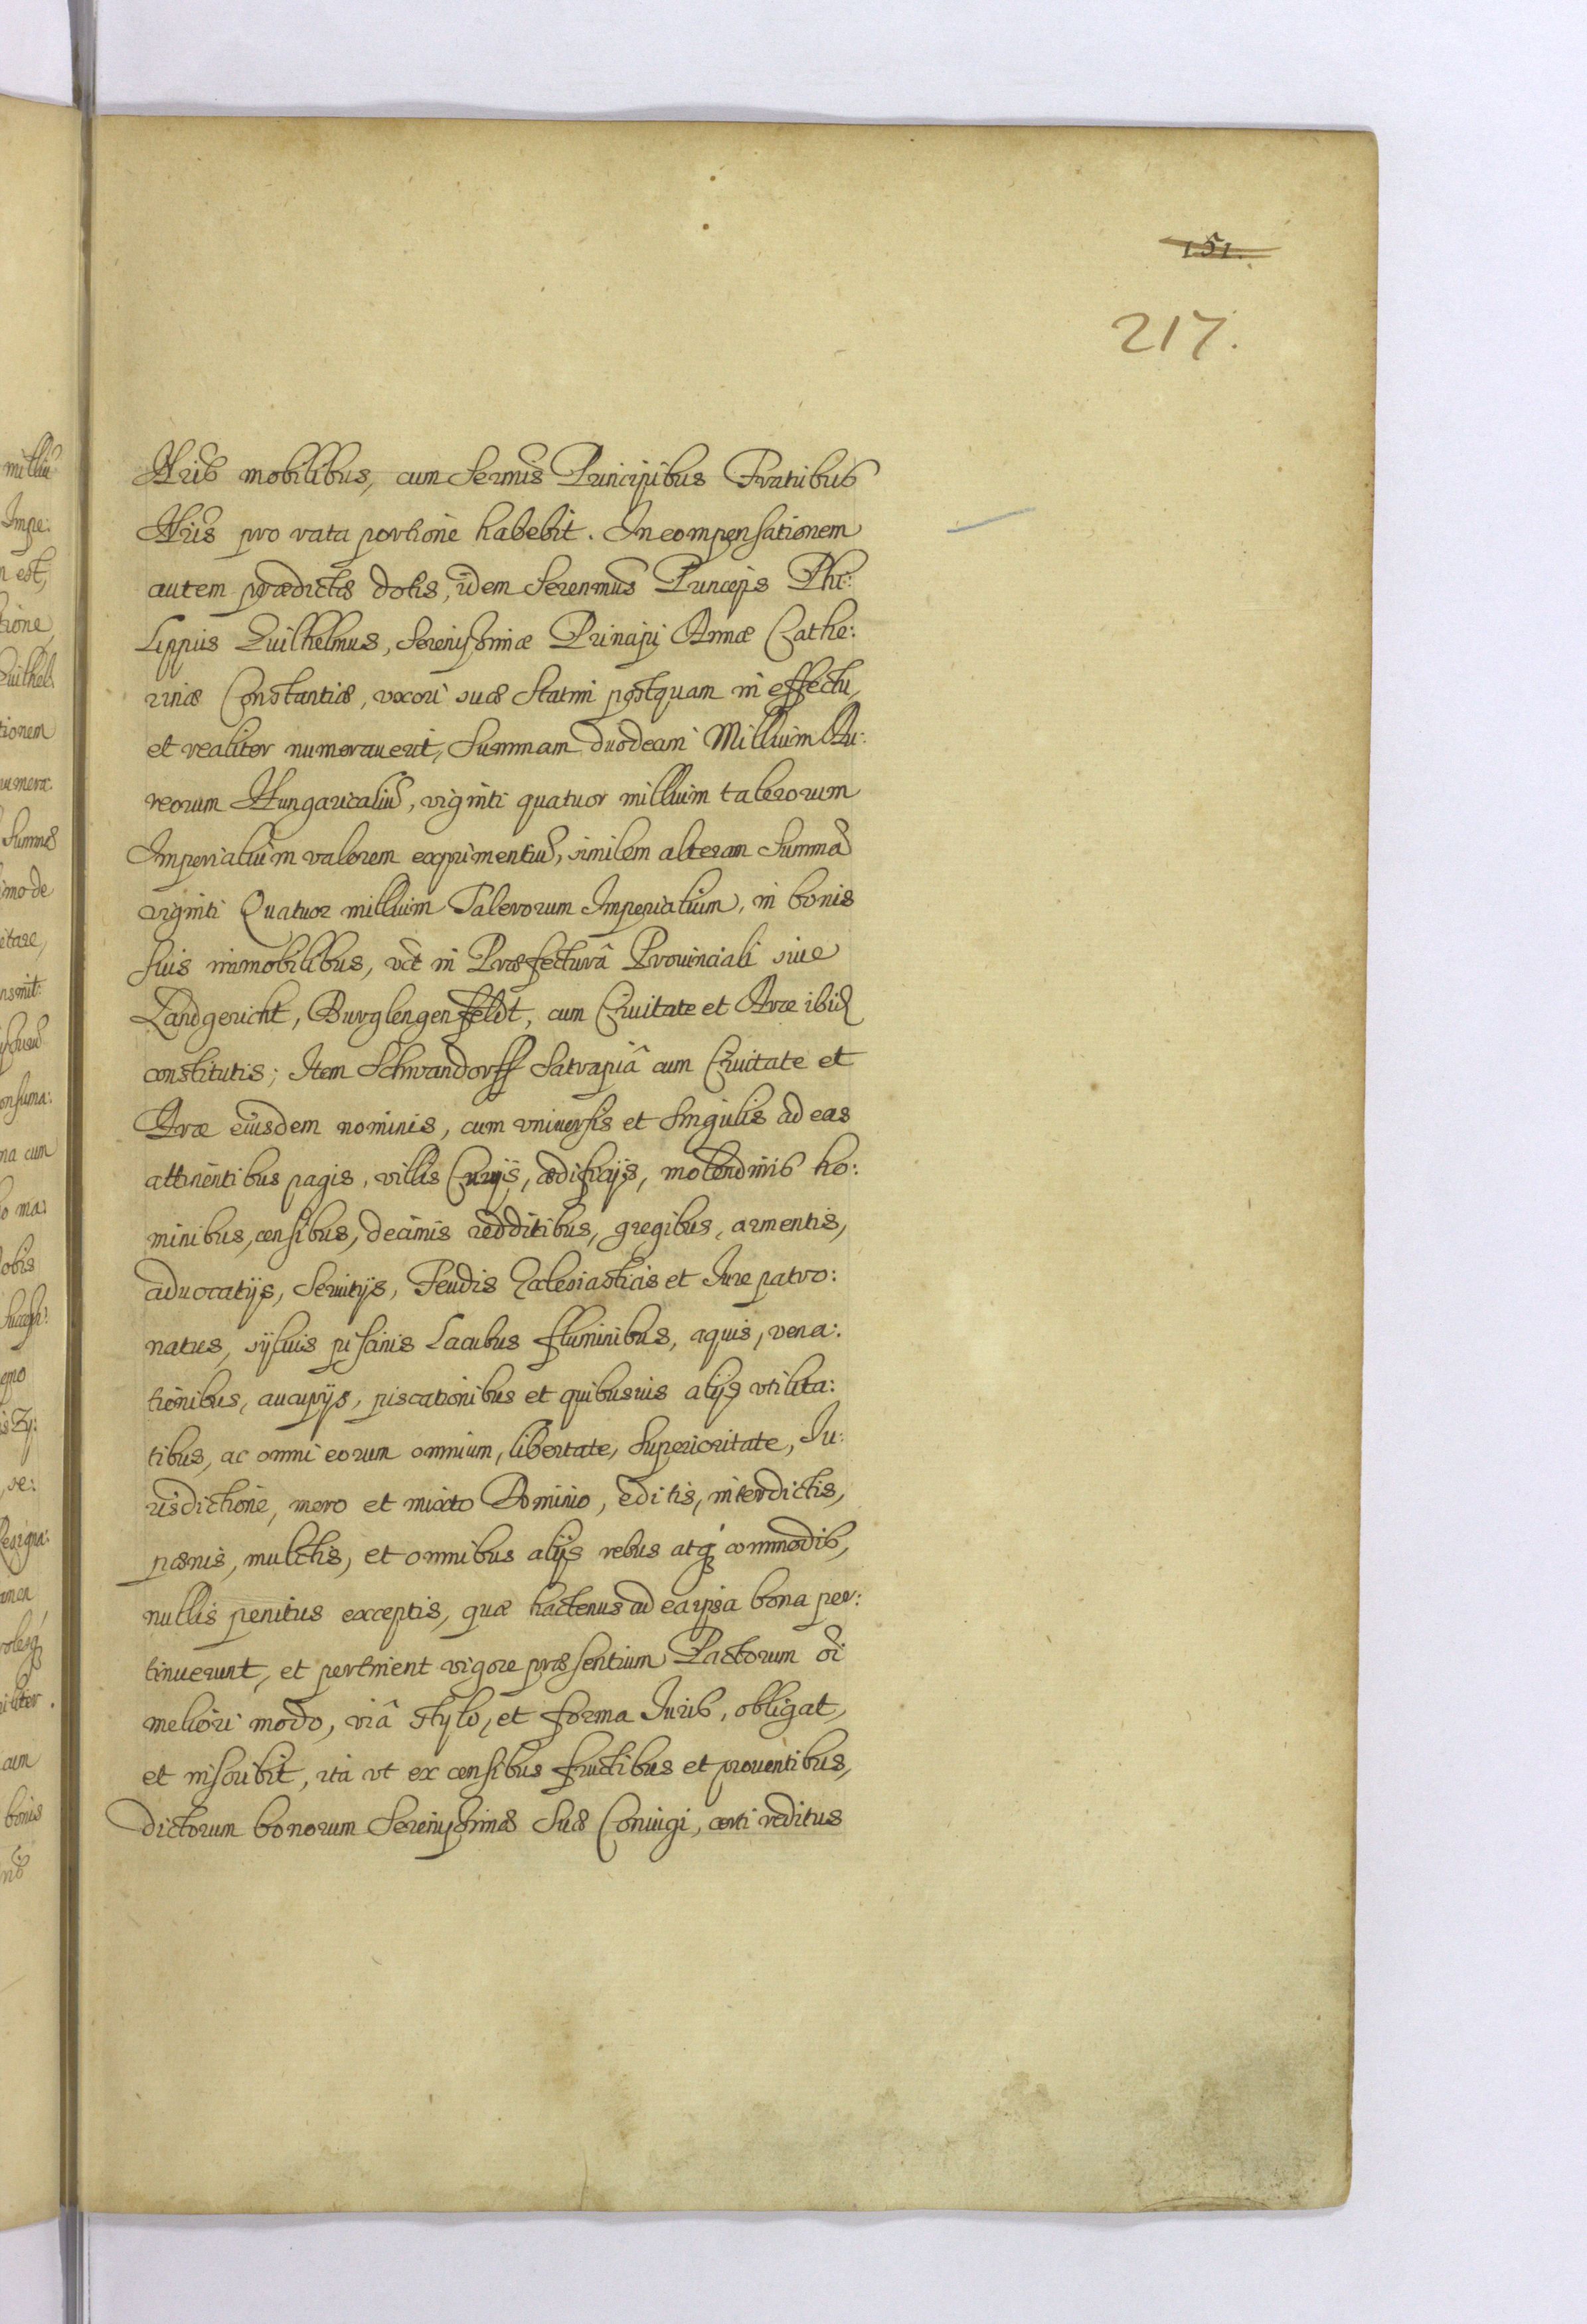 151.
217.
Aris mobilibus, cum Sermis Principibus Fratribus
Aris pro rata portione habebit. In compensationem
autem prædictæ dotis, idem Serenmus Princeps Phi:
lippus Guilhelmus, Serenissimæ Principi Annæ Cathe:
rinæ Constantiæ, vxori suæ statim postquam in effectu,
et realiter numerauerit, Summam duodecim Millium Au:
reorum Hungaricaliũ, viginti quatuor millium talerorum
Imperialium valorem exprimentiũ, similem alteram Summã
viginti Quatuor millium Talerorum Imperialium, in bonis
suis immobilibus, vt in Præfecturâ Prouinciali siue
Landgericht, Burglengenfeldt, cum Ciuitate et Arce ibid
constitutis; Item Schwandorff Satrapiâ cum Ciuitate et
Arce eiusdem nominis, cum vniuersis et singulis ad eas
attinentibus pagis, villis Curijs, ædificijs, molendinis ho:
minibus, censibus, decimis redditibus, gregibus, armentis,
aduocatijs, Seruitijs, Feudis Ecclesiasticis et Iure patro:
natus, syluis piscinis Lacubus fluminibus, aquis, vena:
tionibus, aucupijs, piscationibus et quibusuis alijs vtilita:
tibus, ac omni eorum omnium, libertate, Superioritate, Iu:
risdictione, mero et mixto Dominio, editis, interdictis,
pænis, mulctis, et omnibus alijs rebus atq commodis,
nullis penitus exceptis, quæ hactenus ad ea ipsa bona per:
tinuerunt, et pertinent vigore præsentium Pactorum õi
meliori modo, viâ stylo, et forma Iuris, obligat,
et inscribit, ita vt ex censibus fructibus et prouentibus,
dictorum bonorum Serenissimæ Suæ Coniugi, certi reditus